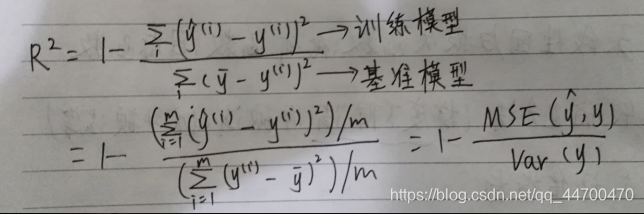 R² = 1 - \frac{\sum_{i} (ŷ^{(i)} - y^{(i)})^2 → 训练模型}{\sum_{i} (ȳ - y^{(i)})^2 → 基准模型}
= 1 - \frac{(\sum_{i=1}^{m} (ŷ^{(i)} - y^{(i)})^2)/m}{(\sum_{i=1}^{m} (y^{(i)} - ȳ)^2)/m} = 1 - \frac{MSE(ŷ, y)}{Var(y)}
https://blog.csdn.net/qq_44700470